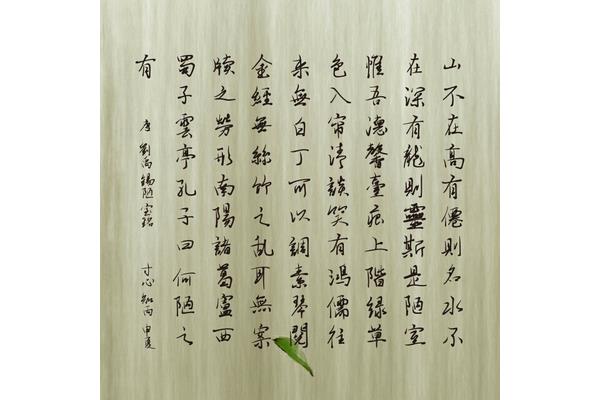 山不在高有僊則名水不
在深有龍則靈斯是陋室
惟吾德馨臺痕上階緑草
色入帘清談笑有鴻儒往
来無白丁可以調素琴閱
金經無絲竹之乱耳無案
牘之勞形南陽諸葛廬西
蜀子雲亭孔子曰何陋之
有
唐劉禹錫陋室銘 寸心